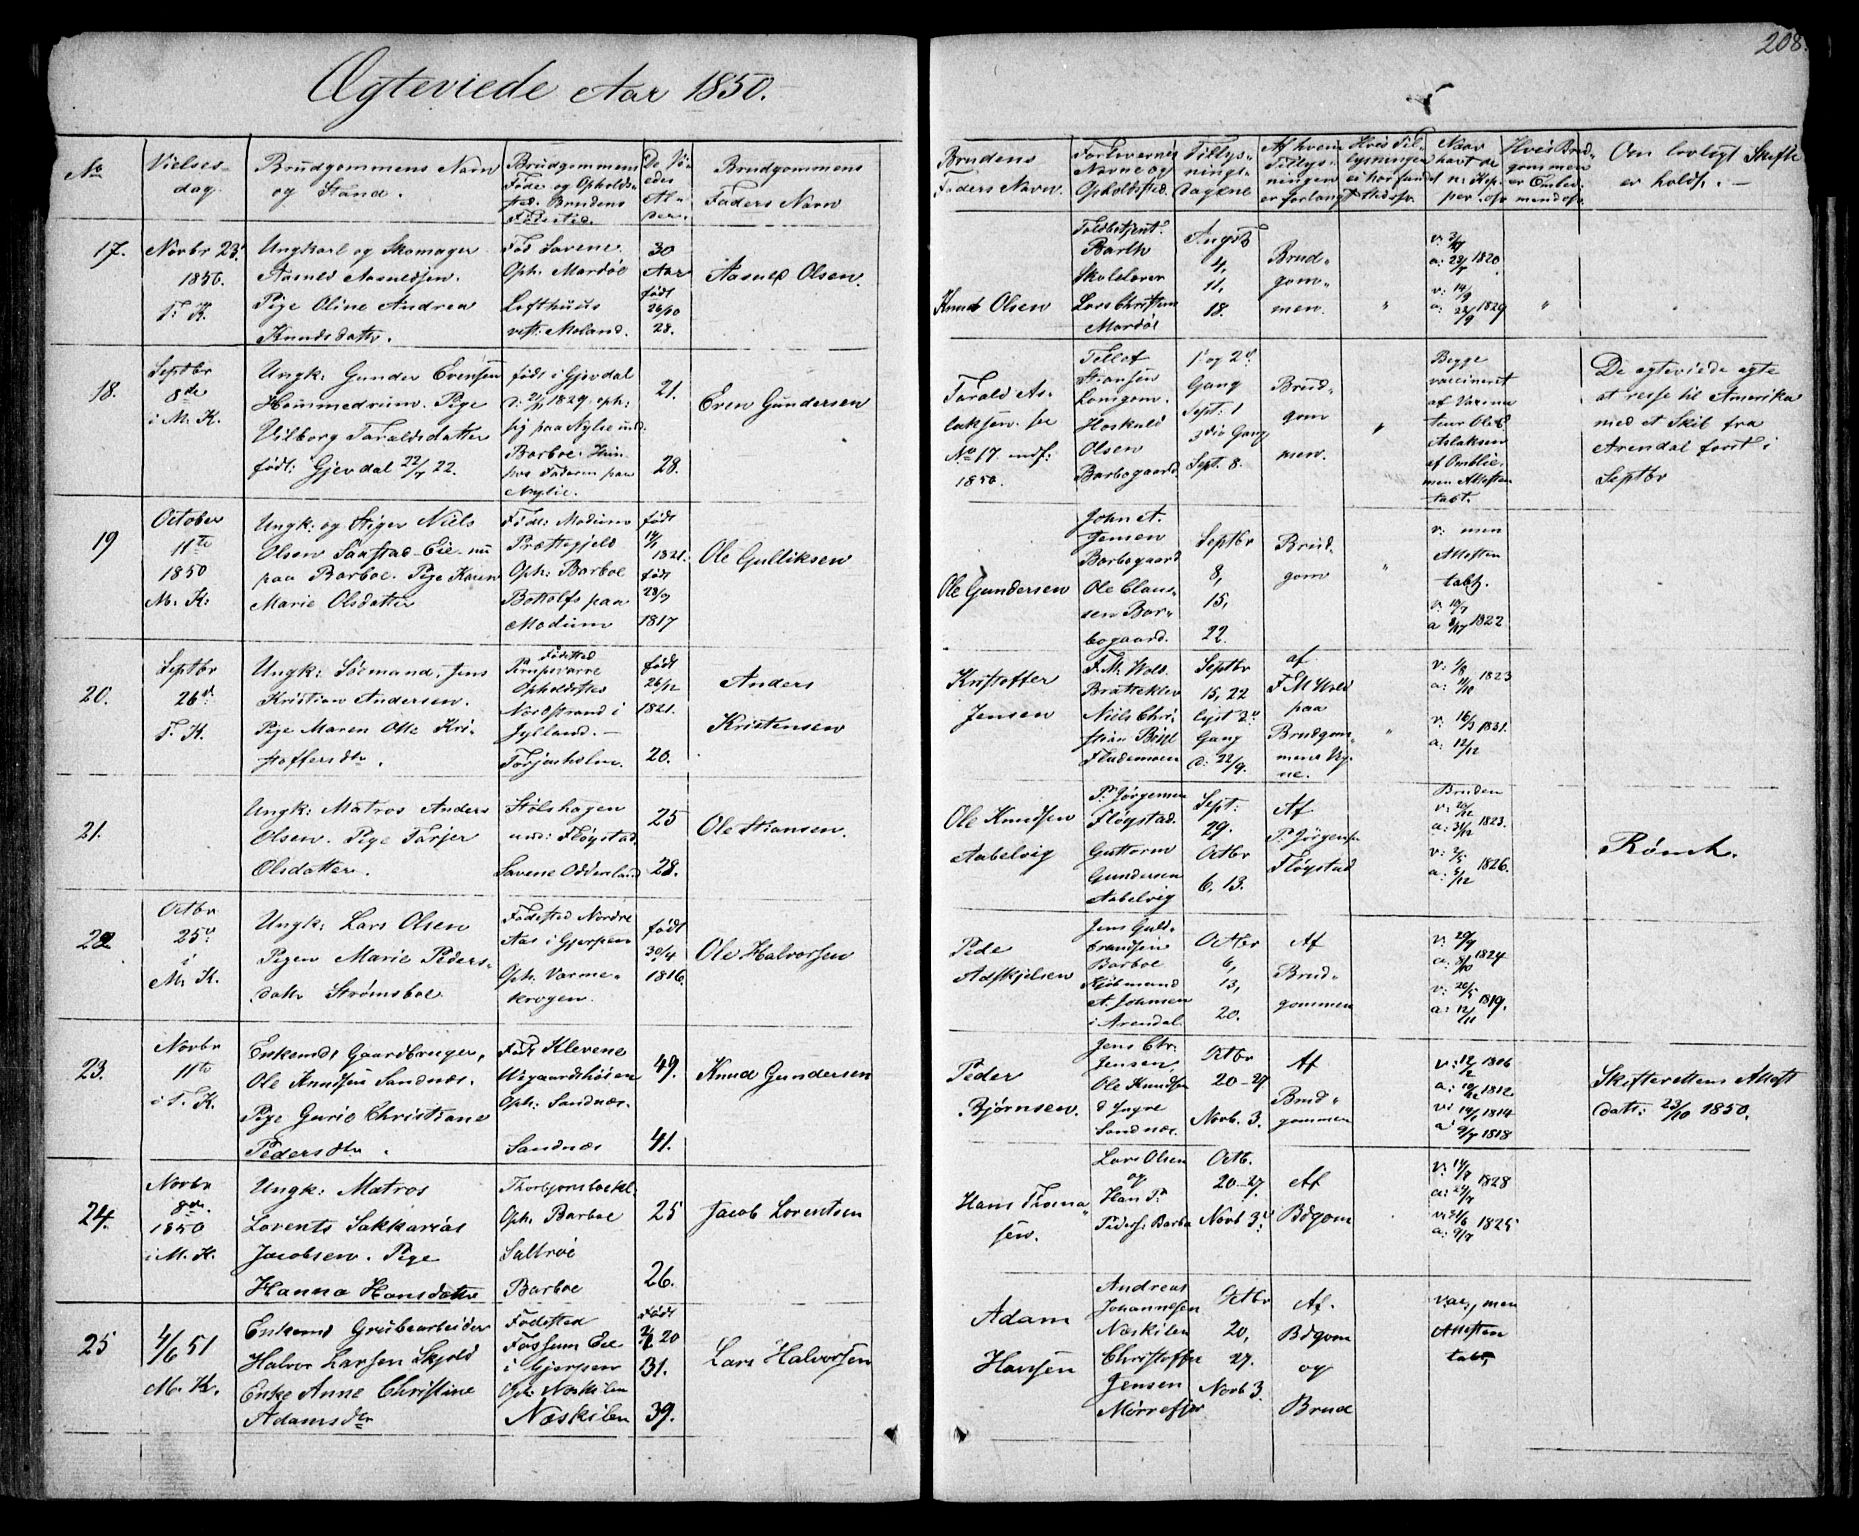 208.
Ægteviede Aar 1850.
No
Vielses-
dag.
Brudgommens Navn
og Stand.
Brudgommens
Føde og Opholds-
sted. Brudens
Fødested.
De Vi-
edes
Al-
der.
Brudgommens
Faders Navn
Brudens
Faders Navn.
Forlovernes
Navne og
Opholdssted.
Tillys-
nings-
Dagene
Af hvem
Tillys-
ningen
er forlangt
Hvis Til-
lysningen
Naar
havt de
n. Kop-
per
Hvis Brud-
gommen
er Embed-
mand
Om lovligt Skifte
er holdt. —
17.
Novbr 23.
1850.
T. K.
Ungkarl og Skomager
Aasneld Aasneldsen.
Pige Oline Andrea
Knudsdatter.
Fød Savene
Oph. Mardøe
Lofthuus
vest. Moland.
30
Aar
født
26/10
28.
Olsen.
Knud Olsen
Toldbetjent.
Barth
Skolelærer
Lars Christian
Mardøe
August
4,
11,
18.
Brud-
gom-
men.
"
v: 3/7
a: 23/7 1820
v: 14/9
a: 22/9 1829
"
18.
Septbr
8de
i M. K.
Ungk: Gunder Evensen
Hommedrum. Pige
Vilborg Taraldsdatter
født: Gjevdal 22/7 22.
født i Gjevdal
1829, oph:
sig paa Nylie und:
Barboe. Hun
hos Faderen paa
Nylie.
21.
28.
Even Gundersen
Tarald As-
laksen. se
No 17 indf:
1850.
Tellef
Stiansen
Longum.
Hoskuld
Olsen
Barbogaard
1 og 2d
Gang
Sept: 1
3die Gang
Sept. 8.
Brud
gom
men.
"
Begge
vaccineret
af Vaccina
teur Ole
Aslaksen
af Omblie,
men Attesten
tabt.
De egteviede agte
at reise til Amerika
med et Skib fra
Arendal først i
Septbr
19
October
11te
1850
M. K:
Ungk: og Stiger Niels
Olsen Saastad-Eie- nu
paa Barboe. Pige Karen
Marie Olsdatter
Føde: Modum
Præstegjeld
Oph: Barboe
Bottolfs paa
Modum
født
14/1
1821.
født
28/9
1817
Ole Gulliksen
Ole Gundersen
John A.
Jensen
Barbogaard
Ole Claus-
sen Bar-
bogaard.
Septbr
8,
15,
22.
Brud-
gom
"
v: men
Attesten
tabt.
1822
20.
Septbr
26d
T. K.
Ungk: Sømand, Jens
Kristian Andersen.
Pige Maren Otte Kri-
stoffersdtr.
Fødested
Opholdssted
Nordstrand i
Jylland. —
Torjusholm.
født
26/12
1821.
20.
Anders
Kristensen
Kristoffer
Jensen
F. M. Wold
Bratteklev
Niels Chri-
stian
Septbr
15, 22
lyst 2d
Gang
d: 22/9.
af
F M Wold
paa
Brudgom-
mens Veg-
ne.
"
1823
v: 16/3 1831.
a: 12/12
21.
Ungk: Matros Anders
Olsen. Pige Tarjer
Olsdatter.
Stølshagen
und: Fløystad
Savene Odderland
25
28.
Ole Stiansen.
Ole Knudsen
Aabelvig
P. Jørgensen
Fløystad.
Guttorm
Gundersen
Aabelvig
Sept:
29.
Octbr
6, 13.
Af
P. Jørgensen
Fløystad
Bruden
a: 31/12 1823.
a: 5/12 1826.
Rømt.
22
Octbr
25d
i
M. K.
Ungk: Lars Olsen
Pigen Marie Peders-
datter Strømsboe.
Fødested Nordre
Aas i Gjerpen
Oph: Varme-
krogen.
født
30/4
1816.
Ole Halvorsen
Pede
Adskjelsen
Jens Guld-
brandsen
Barboe
Kjøbmand
A. Johnsen
i Arendal.
Octbr
6,
13,
20.
Af
Brud-
gommen
v: 20/9
a: 8/10 1824
v: 26/5
a: 12/11 1819.
23.
Novbr
11te
i T. K.
Enkemd Gaardbruger,
Ole Knudsen Sandnæs.
Pige Gurie Christiane
Pedersdtr.
Født Klevene
Oph: Sandnæs.
Sandnæs
49.
41.
Knud Gundersen
Peder
Bjørnsen.
Jens Chr.
Jensen,
Ole Knudsen
d Yngre
Sandnæs.
Octbr
20-27
Novb. 3.
Af
Brud-
gommen
v: 12/2 1806
a: 1812
v: 14/1 1814
a 9/7 1818
Skifterettens Attest
dat: 23/10 1850.
24.
Novbr
8de.
1850
i M. K.
Ungk: Matros
Lorents Sakkarias
Jacobsen. Pige
Hanna Hansdatter
Thorbjørnsbækk.
Oph: Barboe
Saltrøe
Barboe
25
26.
Jacob Lorentsen
Hans Thoma-
sen.
Lars Olsen
og
Han Pr
Peders: Barbo
Octb.
20-27.
Novb 3d
Af
Bdgom
v: 14/7 1828
a: 24/7
v: 21/6 1825
a: 9/7
25
4/6 51
M. K.
Enkemd Grubearbeider
Halvor Larsen Skjold
Enke Anne Christine
Adamsdtr
Fødested
Fossum Eie
i Gjerpen
Oph: Næskilen
Næskilen
Født
20
31.
39.
Lars Halvorsen
Adam
Hansen
Andreas
Johannesen
Næskilen
Christoffer
Jensen
Mørrefjær
Octbr
20,
27.
Novb 3.
Af.
Bdgom
og
Brud
vac, men
Attesten
tabt,